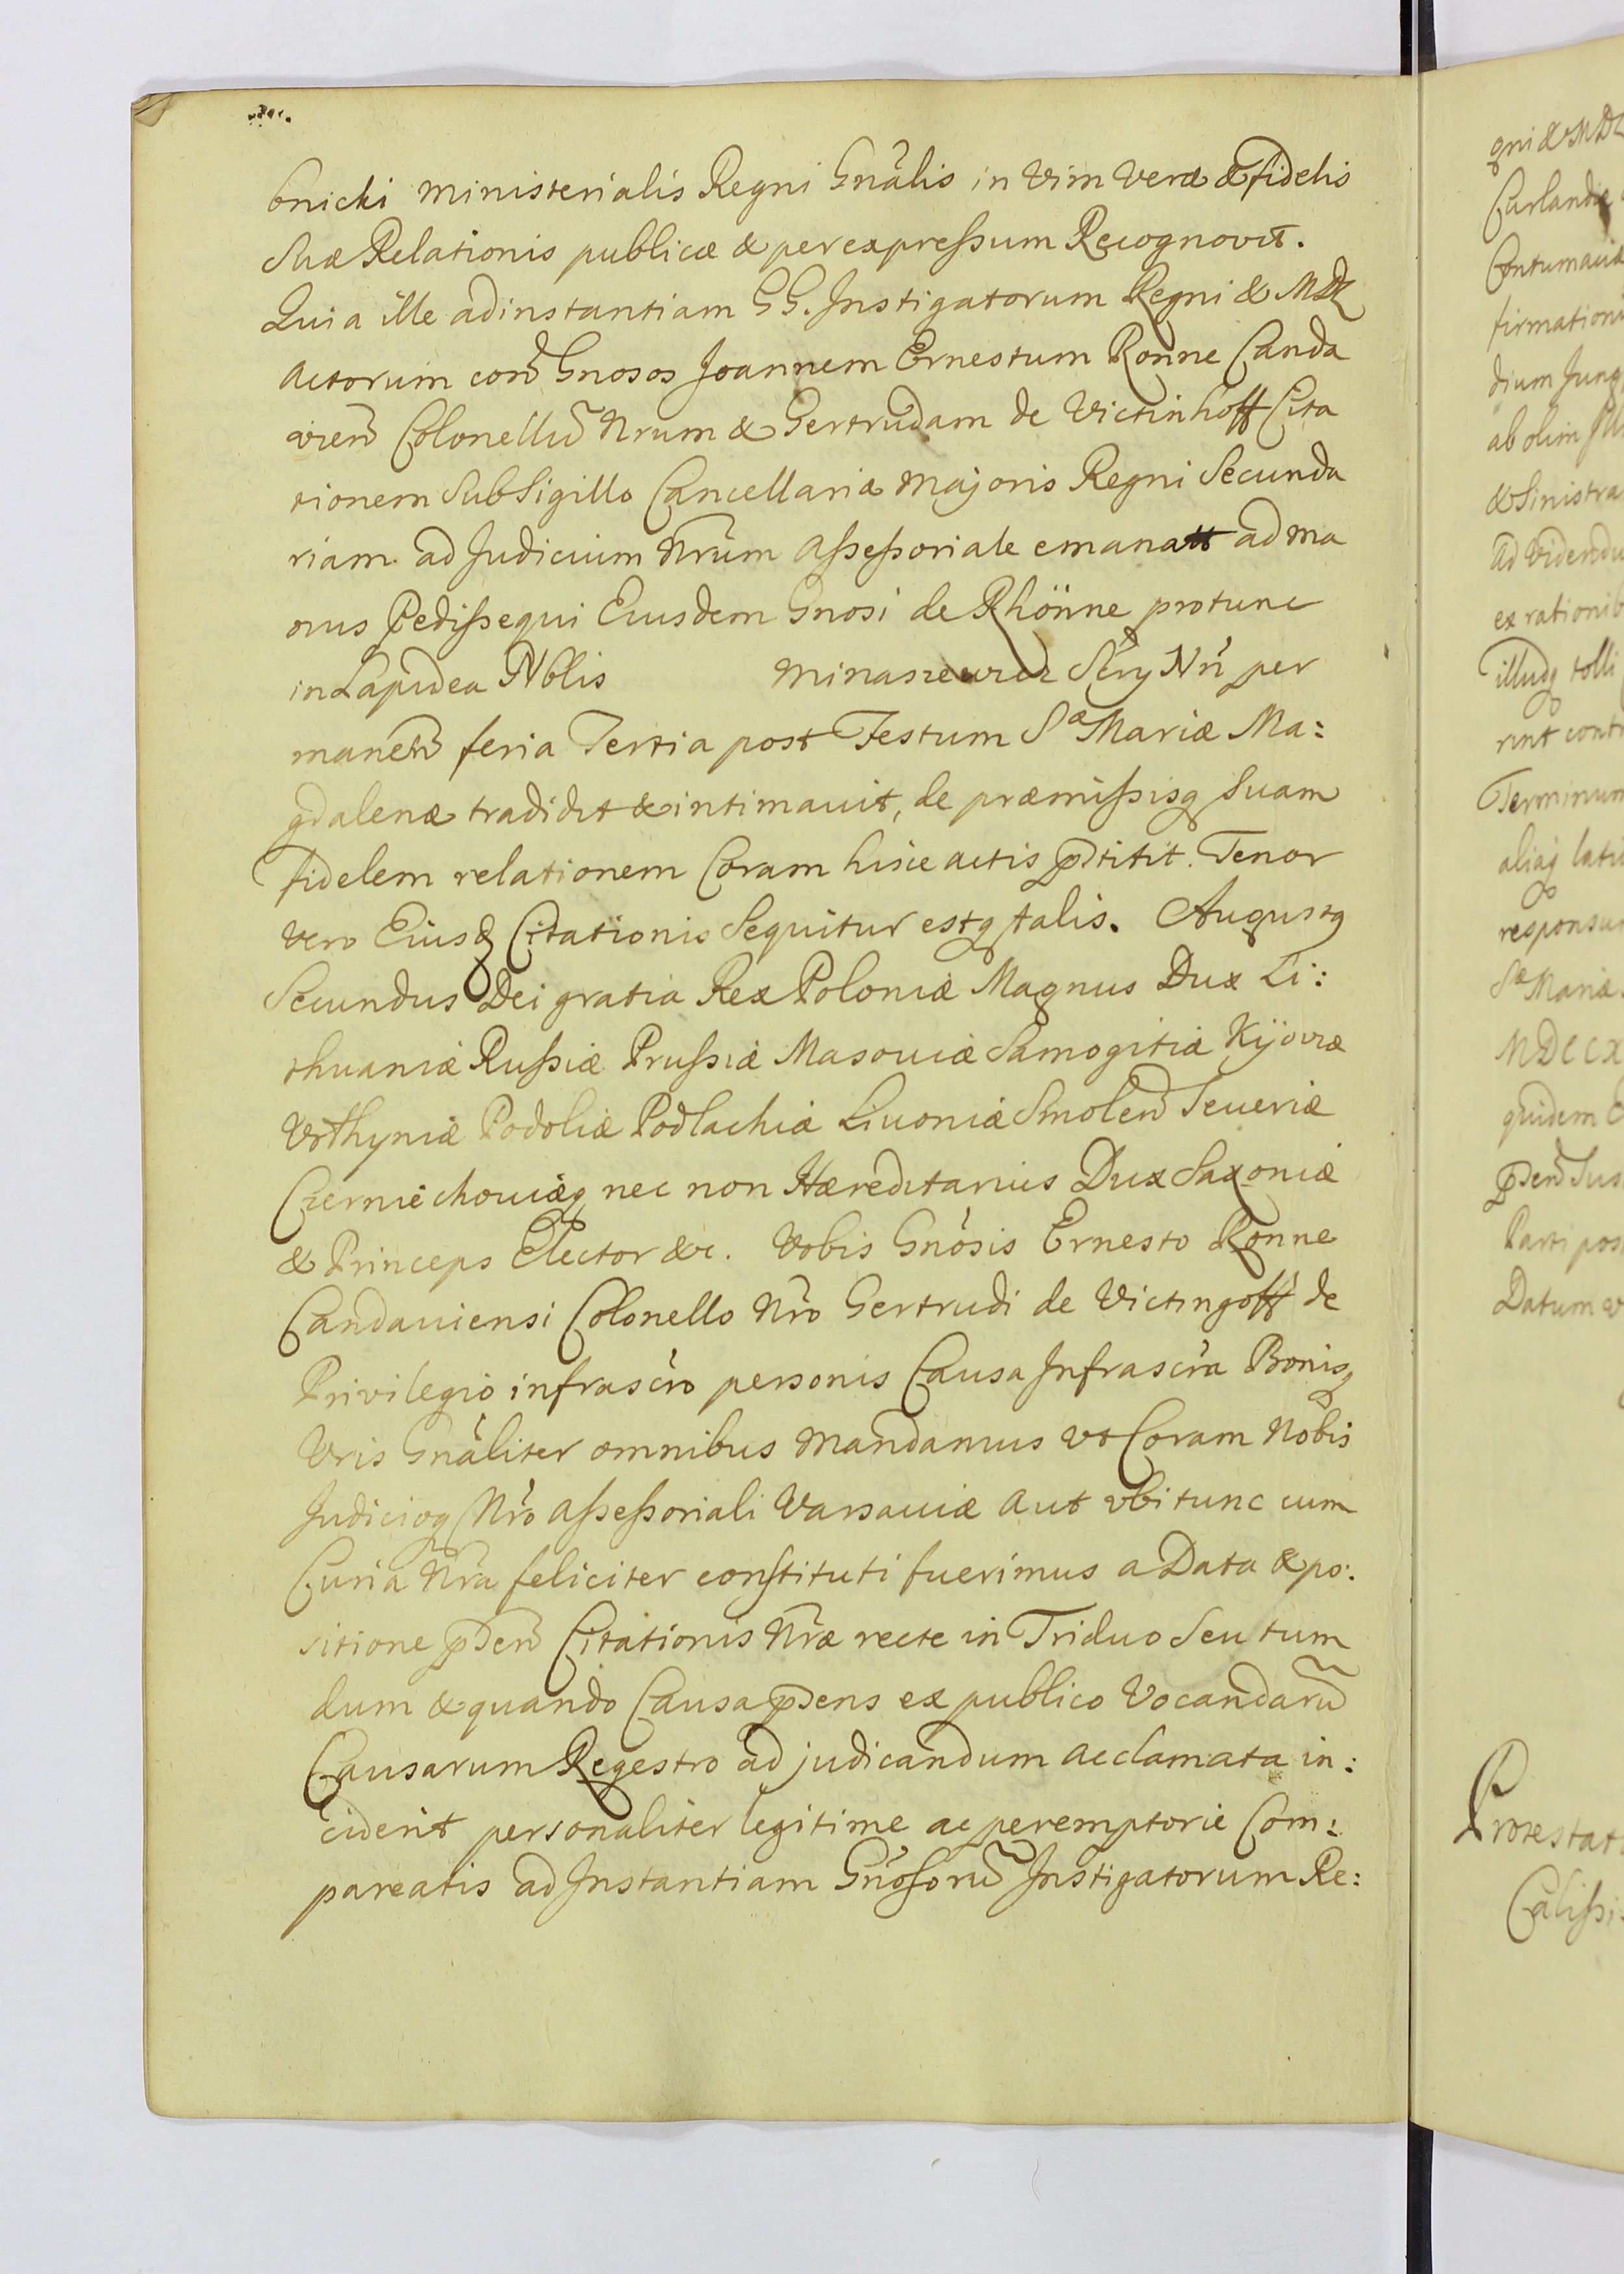 bnicki ministerialis Regni Gnãlis in Vim Veræ & fidelis
Suæ Relationis publicæ & per expreſsum Recognovit.
Quia ille ad instantiam GG. Instigatorum Regni & MDL
Actorum con Gnosos Joannem Ernestum Ronne Canda
vien Colonellũ Nrum & Gertrudam de Victinhoff Cita
tionem Sub Sigillo Cancellariæ Majoris Regni Secunda
riam ad Judicium Nrũm Aſseſsoriale emanatt ad ma
nus Pediſsequi Eiusdem Gnosi de Rhönne protunc
in Lapidea Nblis Minasiewicz Nri per
manen feria Tertia post Festum Sæ Mariæ Ma:
gdalenæ tradidit & intimavit, de præmiſsisq Suam
fidelem relationem Coram hisce actis pstitit. Tenor
Vero Eiusd Citationis Sequitur estq talis. Augustq
Secundus Dei gratia Rex Poloniæ Magnus Dux Li:
thuaniæ Ruſsiæ Pruſsiæ Masoviæ Samogitiæ Kijoviæ
Volhyniæ Podoliæ Podlachiæ Livoniæ Smolen Severiæ
Czerniechoviæq nec non Hæreditarius Dux Saxoniæ
& Princeps Elector &c. Vobis Gnosis Ernesto Ronne
Candaviensi Colonello Nro Gertrudi de Victingoff de
Privilegio infrascro personis Causa Infrascra Bonisq
Vris Gnãliter omnibus Mandamus vt Coram Nobis
Judicioq Nro Aſseſsoriali Varsaviæ aut vbi tunc cum
Curia Nra feliciter conſtituti fuerimus a Data & po:
sitione psen Citationis Nræ recte in Triduo Seu tum
dum & quando Causa psens ex publico Vocandarũ
Causarum Regestro ad judicandum acclamata in:
ciderit personaliter legitime ac peremptorie Com:
pareatis ad Instantiam Gnosorũ Instigatorum Re:
gni & MDL
Curlandiæ
Contumacia
firmation
dium Jung
ab olim
& Sinistra
ad Videndu
ex rationib
illudq tolli
rint cont
Terminum
aliaq lati
responsu
Sæ Mariæ
MDCCX
quidem
psen Sus
Parti pos
Datum
Protestat
Caliſsi